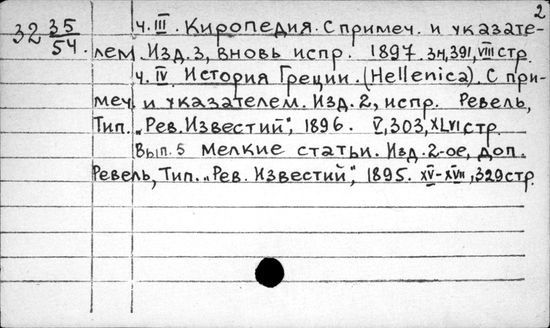 2
32 35/54. ч. III. Киропедия. С примеч. и указате-
лем. Изд. 3, вновь испр. 1897. 34, 391, VIII стр.
ч. IV. История Греции. (Hellenica). С при-
меч. и указателем. Изд. 2, испр. Ревель,
Тип. „Рев. Известий", 1896. V, 303, XLVI стр.
Вып. 5 Мелкие статьи. Изд. 2-ое, доп.
Ревель, Тип. „Рев. Известий", 1895. XV-XVII, 329 стр.